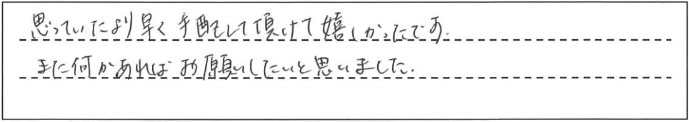 思っていたより早く手配して頂けて嬉しかったです.
また何かあればお願いしたいと思いました.